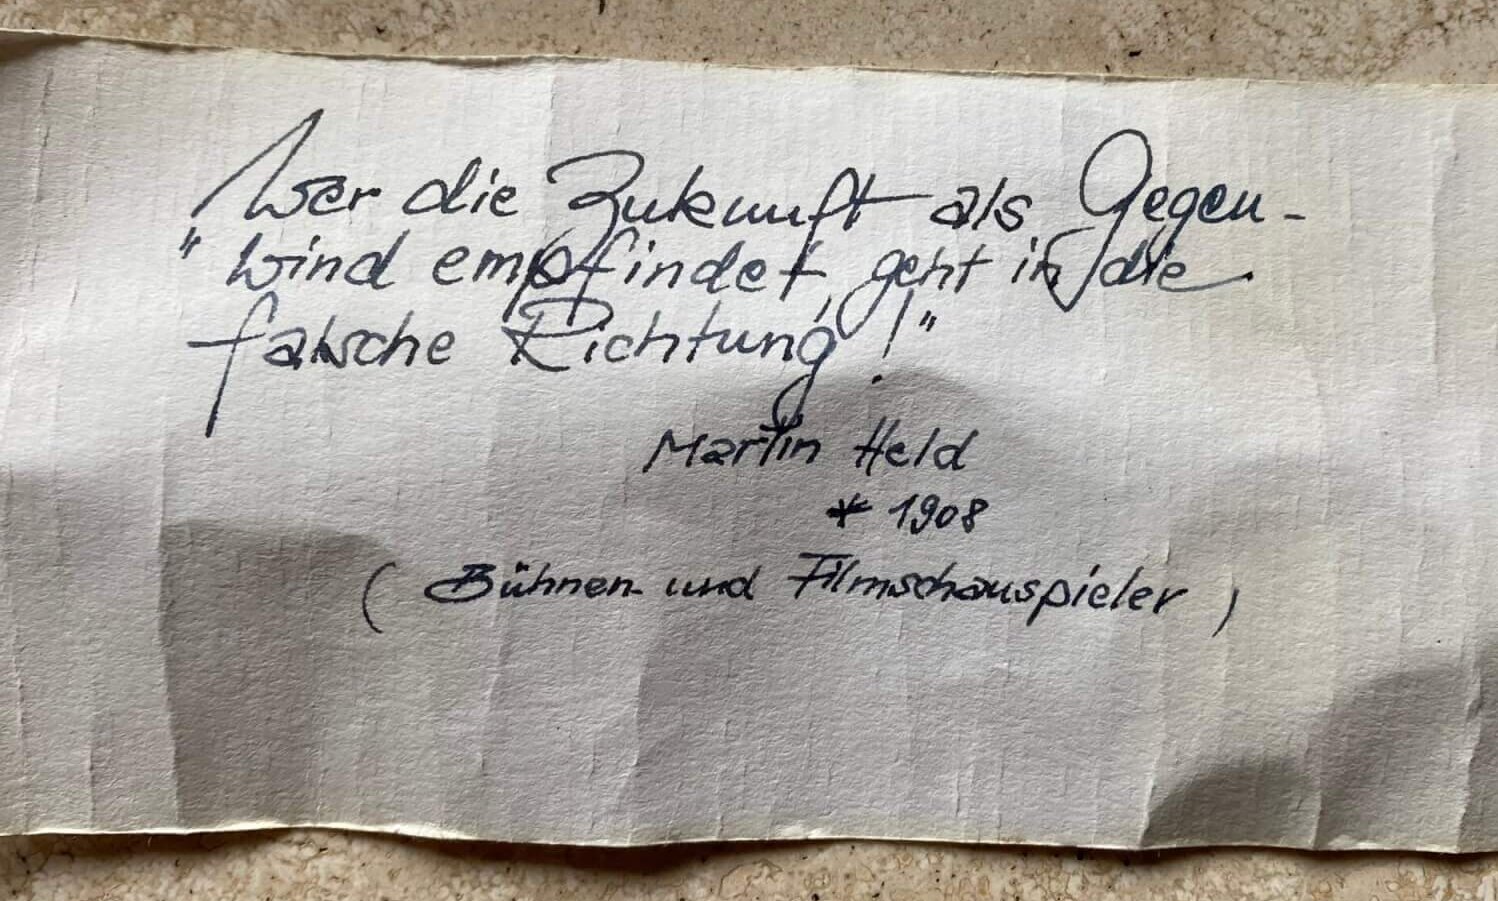 "Wer die Zukunft als Gegen-
wind empfindet, geht in die
falsche Richtung!"
Martin Held
* 1908
( Bühnen- und Filmschauspieler )